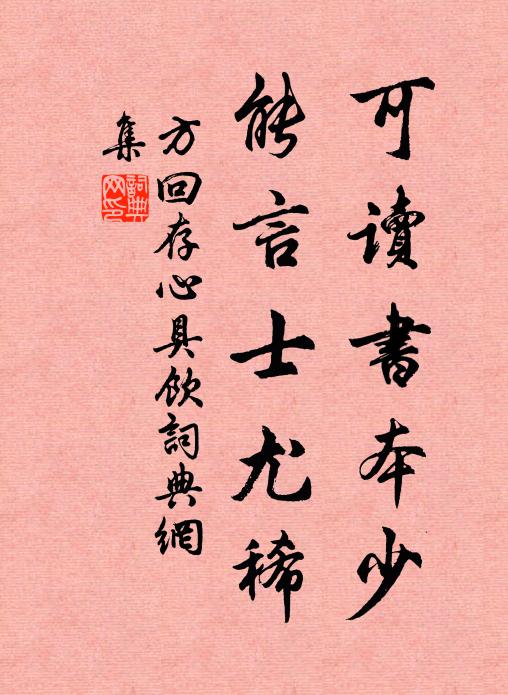 可讀書本少
能言士尤稀
方回存心具飲詞典網
集
詞典
网印